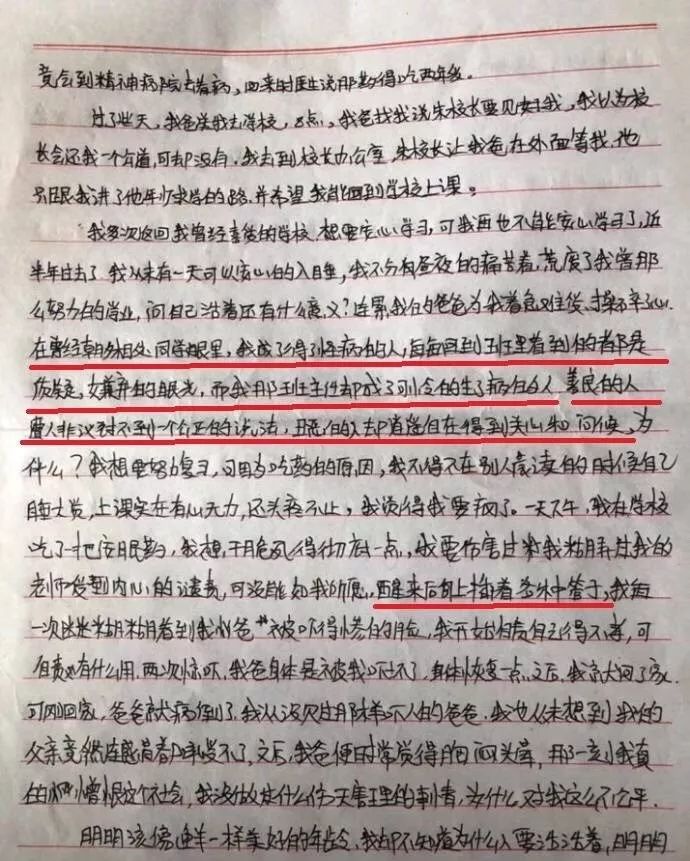 竟会到精神病院去看病，回来时医生说那药得吃两年级。
过了些天，我爸送我去学校，8点，我爸找我说朱校长要见见我，我以为校
长会还我一个公道，可却没有，我去到校长办公室，朱校长让我爸在外面等我，他
只跟我讲了他年少求学的路，并希望我能回到学校上课。
我多次返回我曾经喜爱的学校，想要安心学习，可我再也不能安心学习了，近
半年过去了，我从未有一天可以安心的入睡，我不分白昼夜的痛苦着，荒废了我曾那
么努力的学业，问自己活着还有什么意义？连累我的爸爸为我着急
在曾经朝夕相处同学眼里，我成了得了怪病的人，每每回到班里看到的都是
质疑，嫌弃的眼光，而我那班主任却成了可怜的生了病的人，善良的人
遭人非议讨不到一个公正的说法，丑恶的人却逍遥自在得到关心和问候，为
什么？我想要努力复习，可因为吃药的原因，我不得不在别人晨读的时候自己
睡大觉，上课实在有心无力，还头疼不止，我觉得我要疯了。一天下午，我在学校
吃了一把安眠药，我想，干脆死得彻底一点，我要伤害过来我粘弄过我的
老师发型内心的谴责，可没能如我所愿，醒来后身上插着各种管子，我每
一次迷迷糊糊看到我爸爸被吓得惨白的脸，我开始自责自己得不孝，可
自责又有什么用，两次惊吓，我爸身体是被我吓坏了，身体恢复一点之后，我就回了家，
可刚回家，爸爸就病倒了，我从没见过那样吓人的爸爸，我也从未想到我的
父亲竟然连感冒都承受不了，之后，我爸便时常觉得胸闷头晕，那一刻我真
的憎恨这个社会，我没做过什么伤天害理的事情，为什么对我这么不公平，
明明该像鲜花一样美好的年龄，我却不知道为什么人要活活着，明明